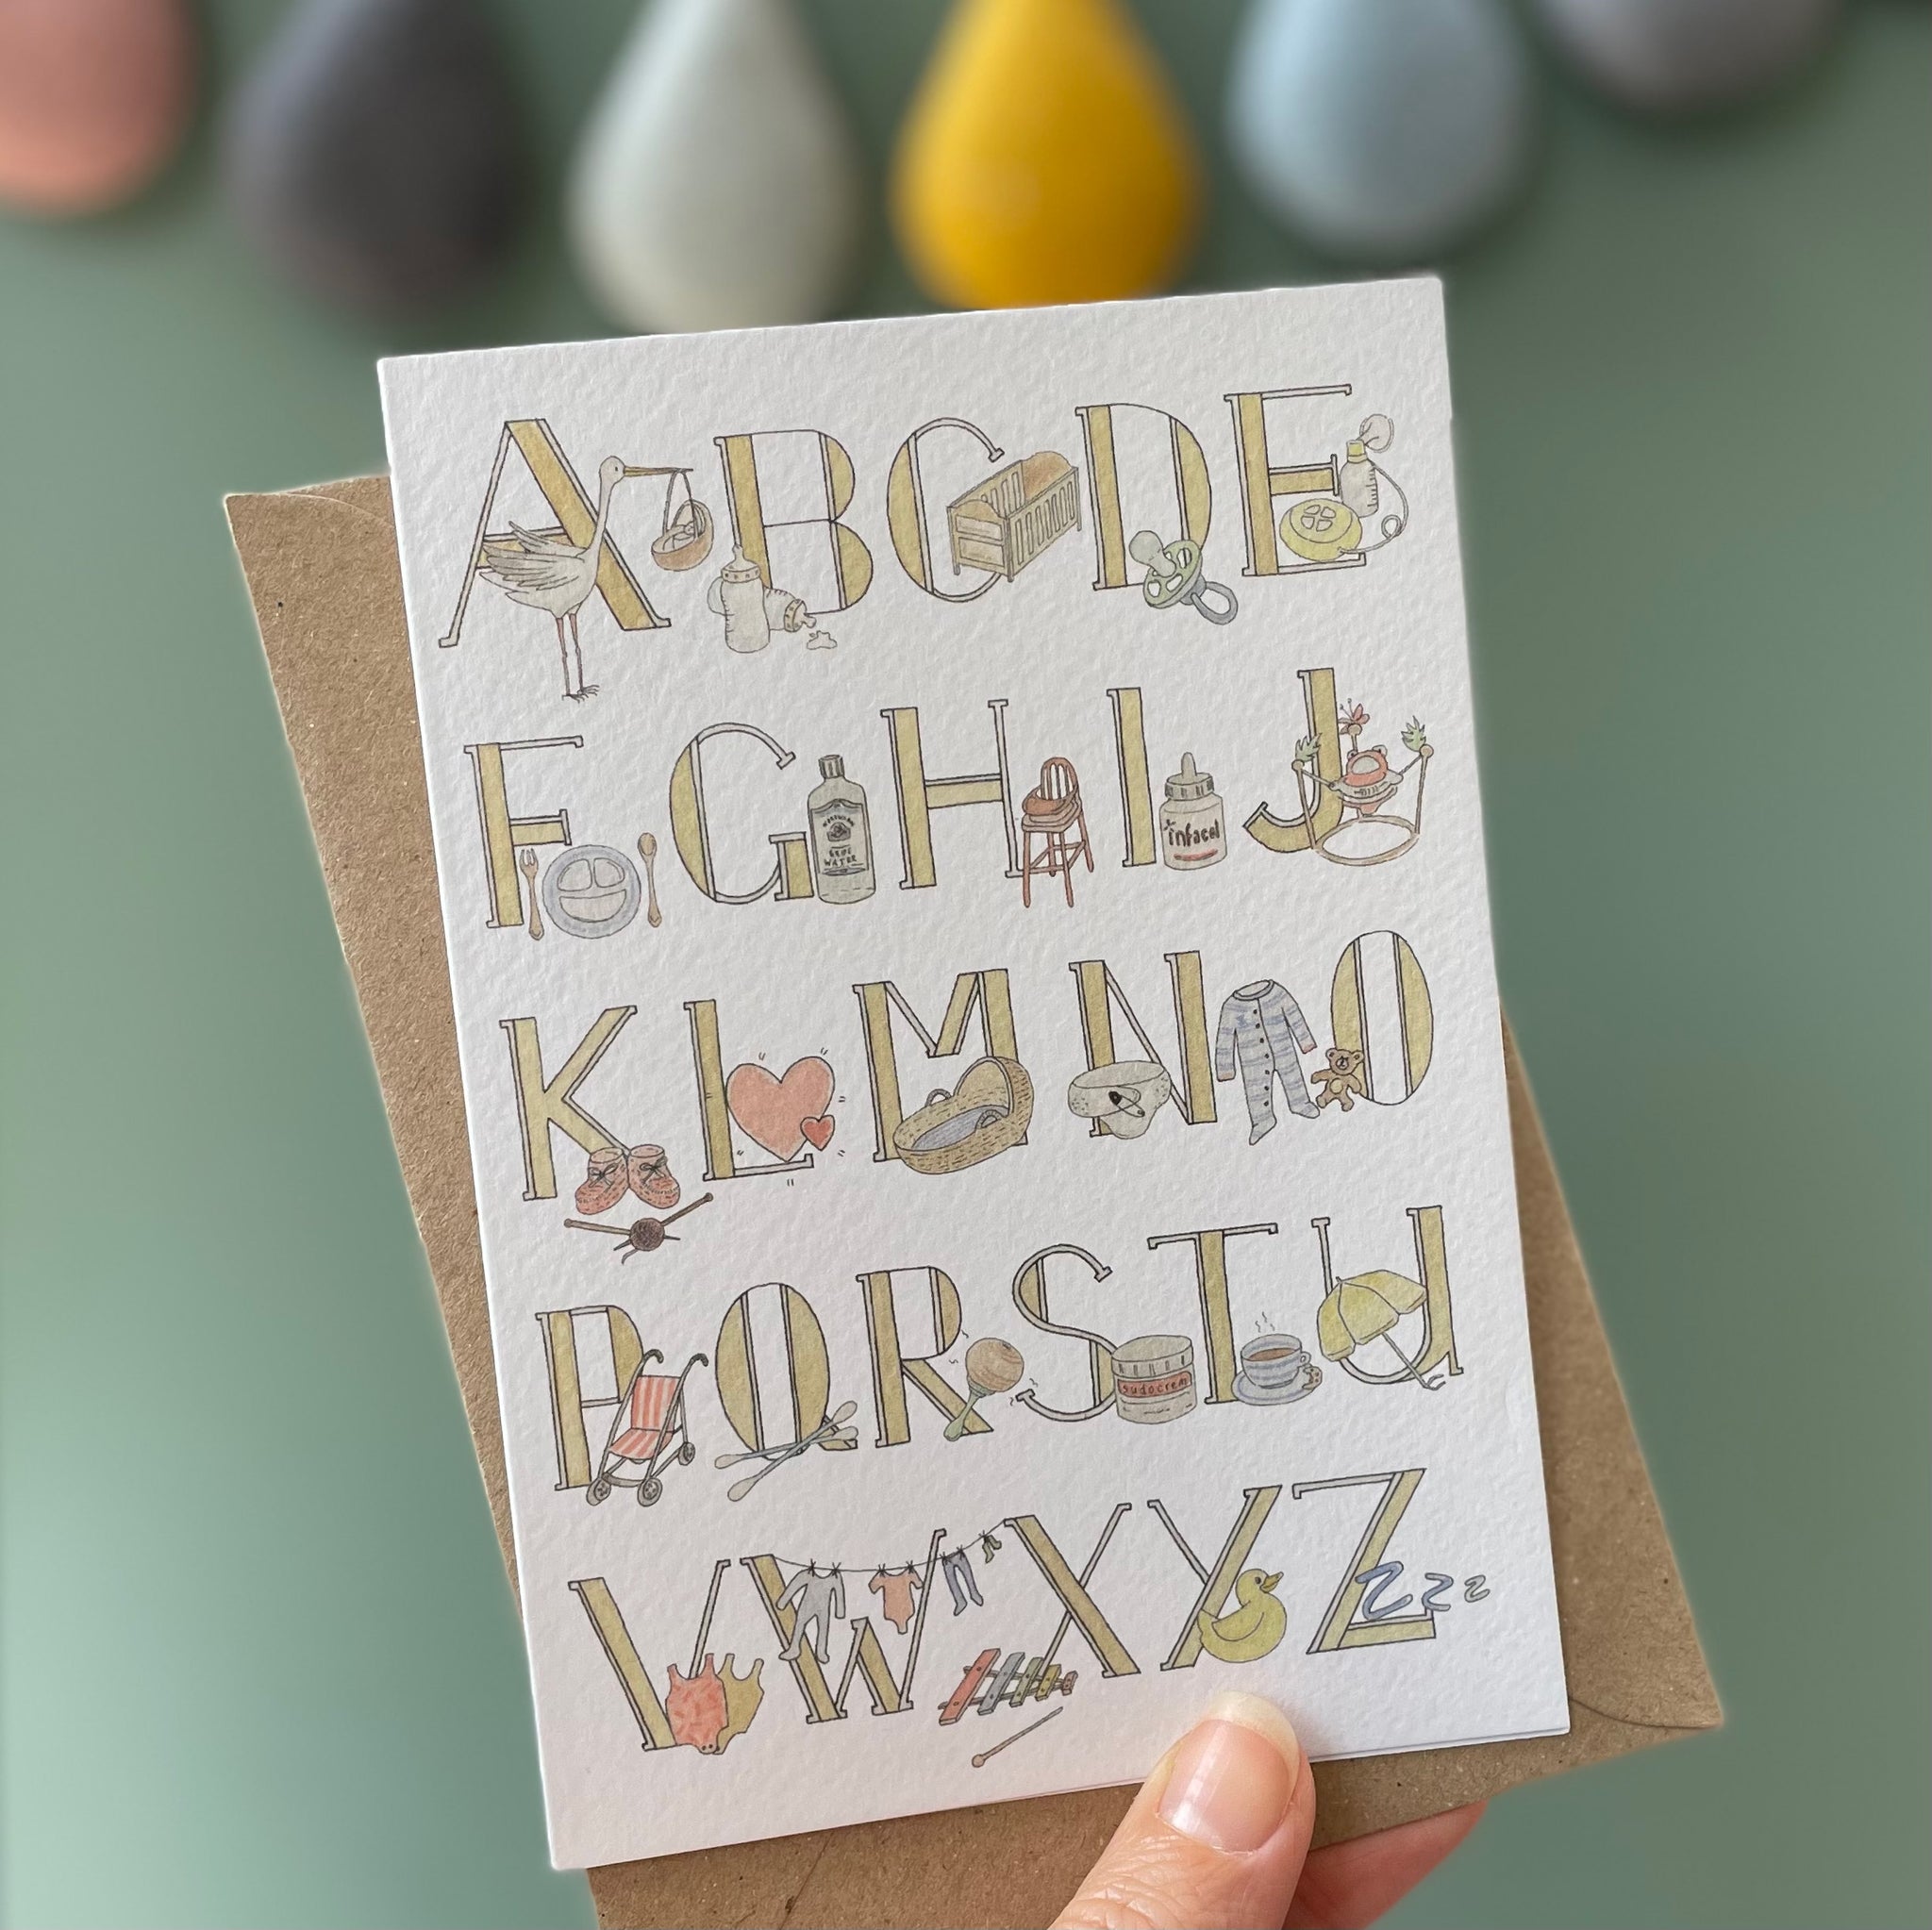 A B C D E
F G H I J
GRIPE
WATER
infacol
K L M N O
P Q R S T U
sudocrem
V W X Y Z
z z z